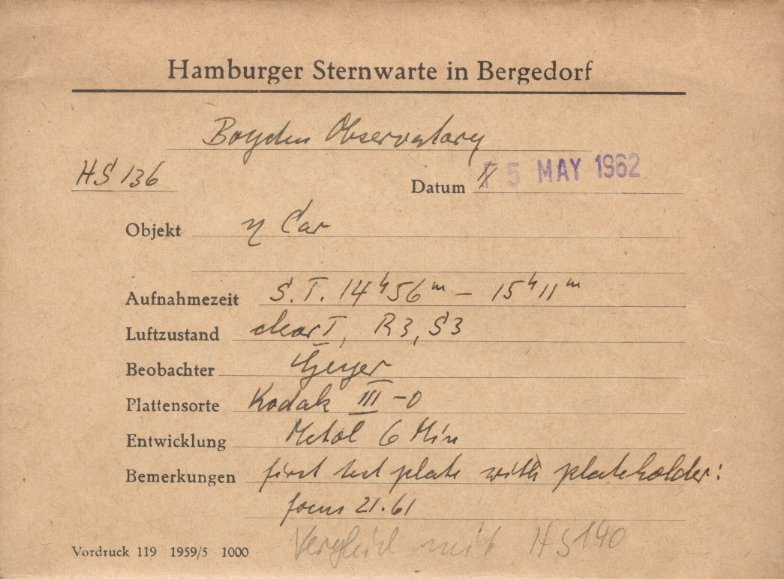 Hamburger Sternwarte in Bergedorf
Boyden Observatory
HS 136
Datum 5 MAY 1962
Objekt η Car
Aufnahmezeit S.T. 14ʰ56ᵐ – 15ʰ11ᵐ
Luftzustand clear I, R3, S3
Beobachter Geyer
Plattensorte Kodak III-O
Entwicklung Metol 6 Min
Bemerkungen first test plate with plateholder:
focus 21.61
Vergleich mit HS140
Vordruck 119 1959/5 1000